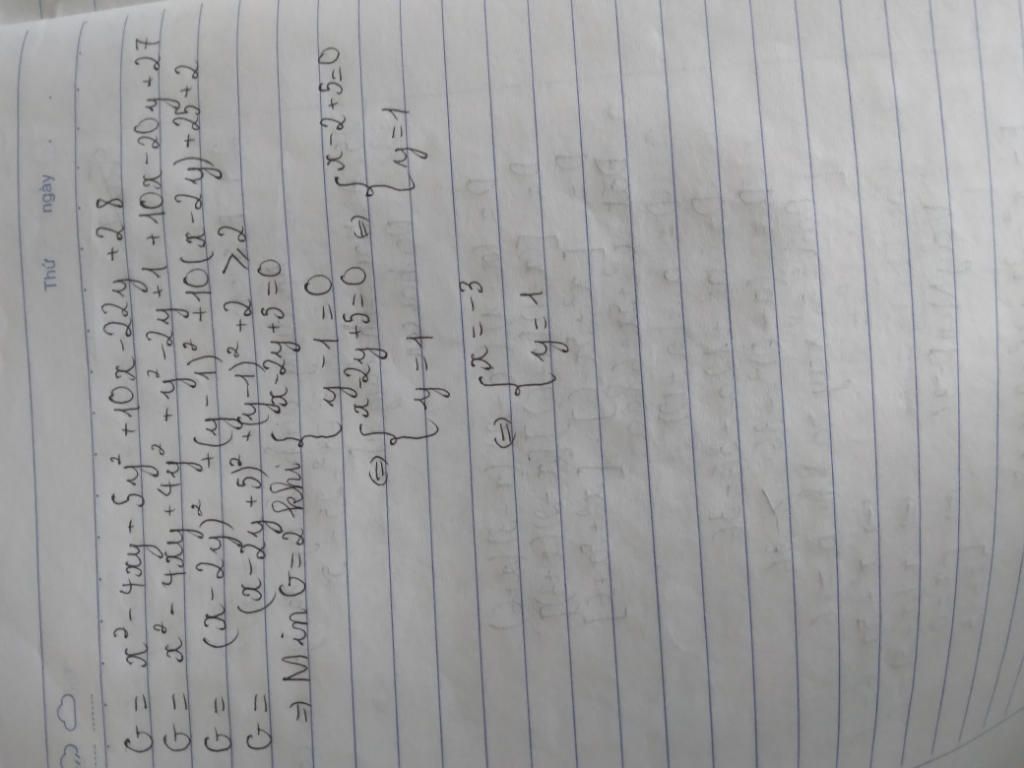 Thứ ngày
G = x² - 4xy + 5y² + 10x - 22y + 28
G = x² - 4xy + 4y² + y² - 2y + 1 + 10x - 20y + 27
G = (x - 2y)² + (y - 1)² + 10(x - 2y) + 25 + 2
G = (x - 2y + 5)² + (y - 1)² + 2 ⩾ 2
⇒ Min G = 2 khi { x - 2y + 5 = 0
{ y - 1 = 0
⇔ { x - 2y + 5 = 0 ⇔ { x - 2 + 5 = 0
{ y = 1 { y = 1
⇔ { x = -3
{ y = 1